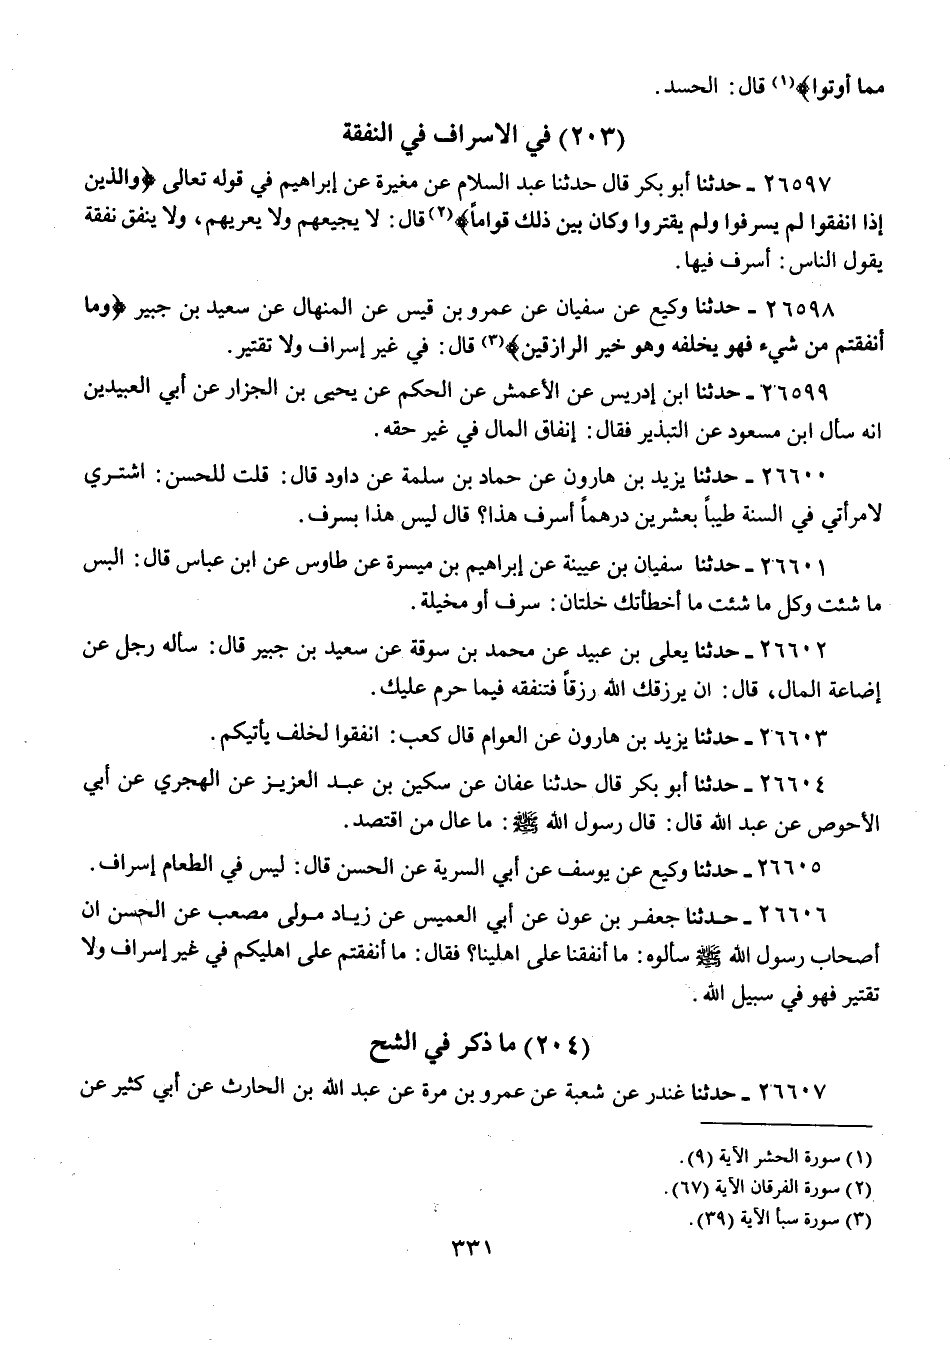 مما أوتوا﴾(١) قال: الحسد.
(٢٠٣) في الاسراف في النفقة
٢٦٥٩٧ ـ حدثنا أبو بكر قال حدثنا عبد السلام عن مغيرة عن إبراهيم في قوله تعالى ﴿والذين
إذا انفقوا لم يسرفوا ولم يقتروا وكان بين ذلك قواماً﴾(٢) قال: لا يجيعهم ولا يعريهم، ولا ينفق نفقة
يقول الناس: أسرف فيها.
٢٦٥٩٨ ـ حدثنا وكيع عن سفيان عن عمرو بن قيس عن المنهال عن سعيد بن جبير ﴿وما
أنفقتم من شيء فهو يخلفه وهو خير الرازقين﴾(٣) قال: في غير إسراف ولا تقتير.
٢٦٥٩٩ ـ حدثنا ابن إدريس عن الأعمش عن الحكم عن يحيى بن الجزار عن أبي العبيدين
انه سأل ابن مسعود عن التبذير فقال: إنفاق المال في غير حقه.
٢٦٦٠٠ ـ حدثنا يزيد بن هارون عن حماد بن سلمة عن داود قال: قلت للحسن: اشتري
لامرأتي في السنة طيباً بعشرين درهماً أسرف هذا؟ قال ليس هذا بسرف.
٢٦٦٠١ ـ حدثنا سفيان بن عيينة عن إبراهيم بن ميسرة عن طاوس عن ابن عباس قال: البس
ما شئت وكل ما شئت ما أخطأتك خلتان: سرف أو مخيلة.
٢٦٦٠٢ ـ حدثنا يعلى بن عبيد عن محمد بن سوقة عن سعيد بن جبير قال: سأله رجل عن
إضاعة المال، قال: ان يرزقك الله رزقاً فتنفقه فيما حرم عليك.
٢٦٦٠٣ ـ حدثنا يزيد بن هارون عن العوام قال كعب: انفقوا لخلف يأتيكم.
٢٦٦٠٤ ـ حدثنا أبو بكر قال حدثنا عفان عن سكين بن عبد العزيز عن الهجري عن أبي
الأحوص عن عبد الله قال: قال رسول الله ﷺ: ما عال من اقتصد.
٢٦٦٠٥ ـ حدثنا وكيع عن يوسف عن أبي السرية عن الحسن قال: ليس في الطعام إسراف.
٢٦٦٠٦ ـ حدثنا جعفر بن عون عن أبي العميس عن زياد مولى مصعب عن الحسن ان
أصحاب رسول الله ﷺ سألوه: ما أنفقنا على اهلينا؟ فقال: ما أنفقتم على اهليكم في غير إسراف ولا
تقتير فهو في سبيل الله.
(٢٠٤) ما ذكر في الشح
٢٦٦٠٧ ـ حدثنا غندر عن شعبة عن عمرو بن مرة عن عبد الله بن الحارث عن أبي كثير عن
(١) سورة الحشر الآية (٩).
(٢) سورة الفرقان الآية (٦٧).
(٣) سورة سبأ الآية (٣٩).
٣٣١